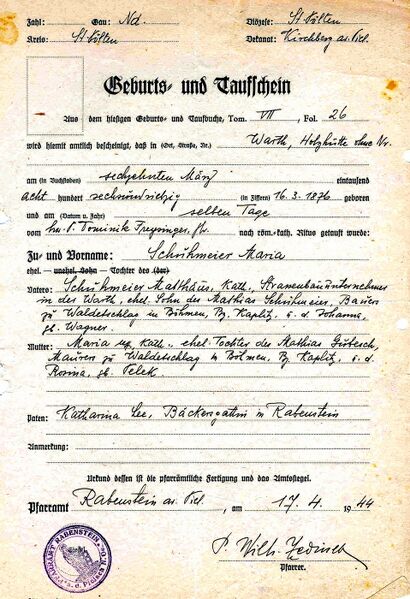 Zahl: Gau: Nd. Diözese: St. Pölten
Kreis: St. Pölten Dekanat: Kirchberg a. Piel.
Geburts- und Taufschein
Aus dem hiesigen Geburts- und Taufbuche, Tom. VII, Fol. 26
wird hiemit amtlich bescheinigt, daß in (Ort, Straße, Nr.) Warth, Holzhütte ohne Nr.
am (in Buchstaben) sechzehnten März eintausend
acht hundert sechsundsiebzig (in Ziffern) 16.3.1876 geboren
und am (Datum u. Jahr) selben Tage
vom Dominik nach röm.-kath. Ritus getauft wurde:
Zu- und Vorname: Schuhmeier Maria
ehel. unehel. Sohn Tochter des (der)
Vaters: Schuhmeier Matthäus, kath., Strassenbauunternehmer
in der Warth, ehel. Sohn des Mathias Schuhmeier, Bauers
zu Waldetschlag in Böhmen, Bz. Kaplitz, u. d. Johanna,
gb. Wagner.
Mutter: Maria kath., ehel. Tochter des Mathias
Maurers zu Waldetschlag in Böhmen, Bz. Kaplitz, u. d.
Rosina, gb.
Paten: Katharina Bäckersgattin in Rabenstein
Anmerkung:
Urkund dessen ist die pfarrämtliche Fertigung und das Amtssiegel.
Pfarramt Rabenstein a. Piel., am 17.4. 1944
P. Wilh.
Pfarrer.
PFARRAMT RABENSTEIN